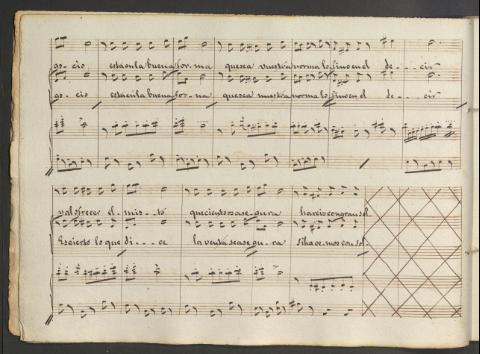 go - cio esta es la buena for - ma que sea vuestra norma lo fino en el de - - - cir
go - cio esta es la buena for - ma que sea nuestra norma lo fino en el de - - - cir
y al ofrecer el - mis - - to que cientos asegura
Es cierto lo que di - - ce la venta se ase gu - ra